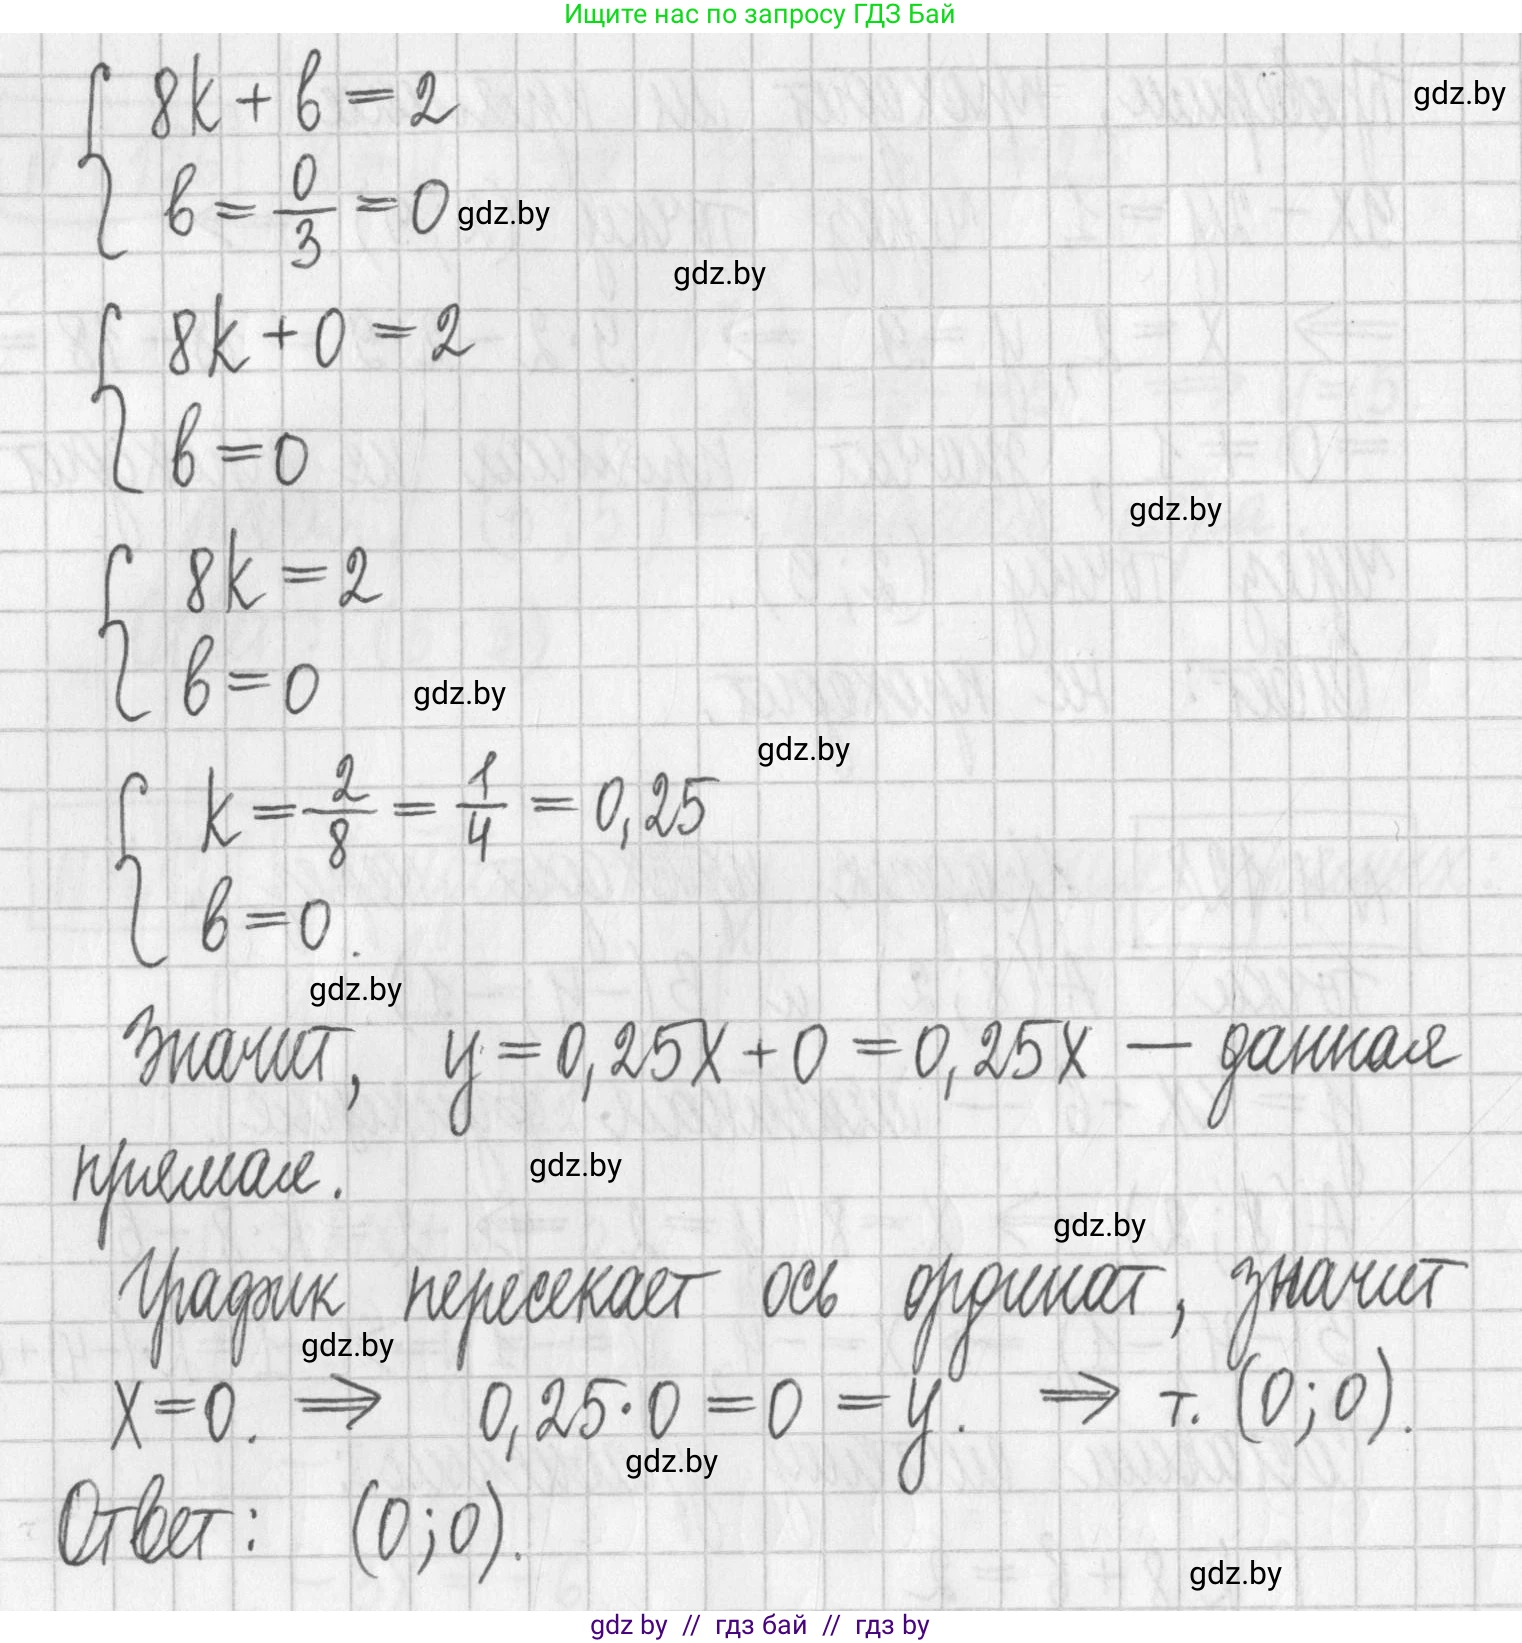 Ищите нас по запросу ГДЗ Бай
8k + в = 2
gdz.by
в = 0/3 = 0
gdz.by
gdz.by
8k + 0 = 2
в = 0
gdz.by
8k = 2
в = 0
gdz.by
gdz.by
k = 2/8 = 1/4 = 0,25
в = 0.
gdz.by
Значит, y = 0,25x + 0 = 0,25x — данная
прямая.
gdz.by
gdz.by
График пересекает ось ординат, значит
gdz.by
x = 0. ⇒ 0,25·0 = 0 = y. ⇒ т. (0;0).
gdz.by
Ответ: (0;0).
gdz.by
gdz by // гдз бай // гдз by